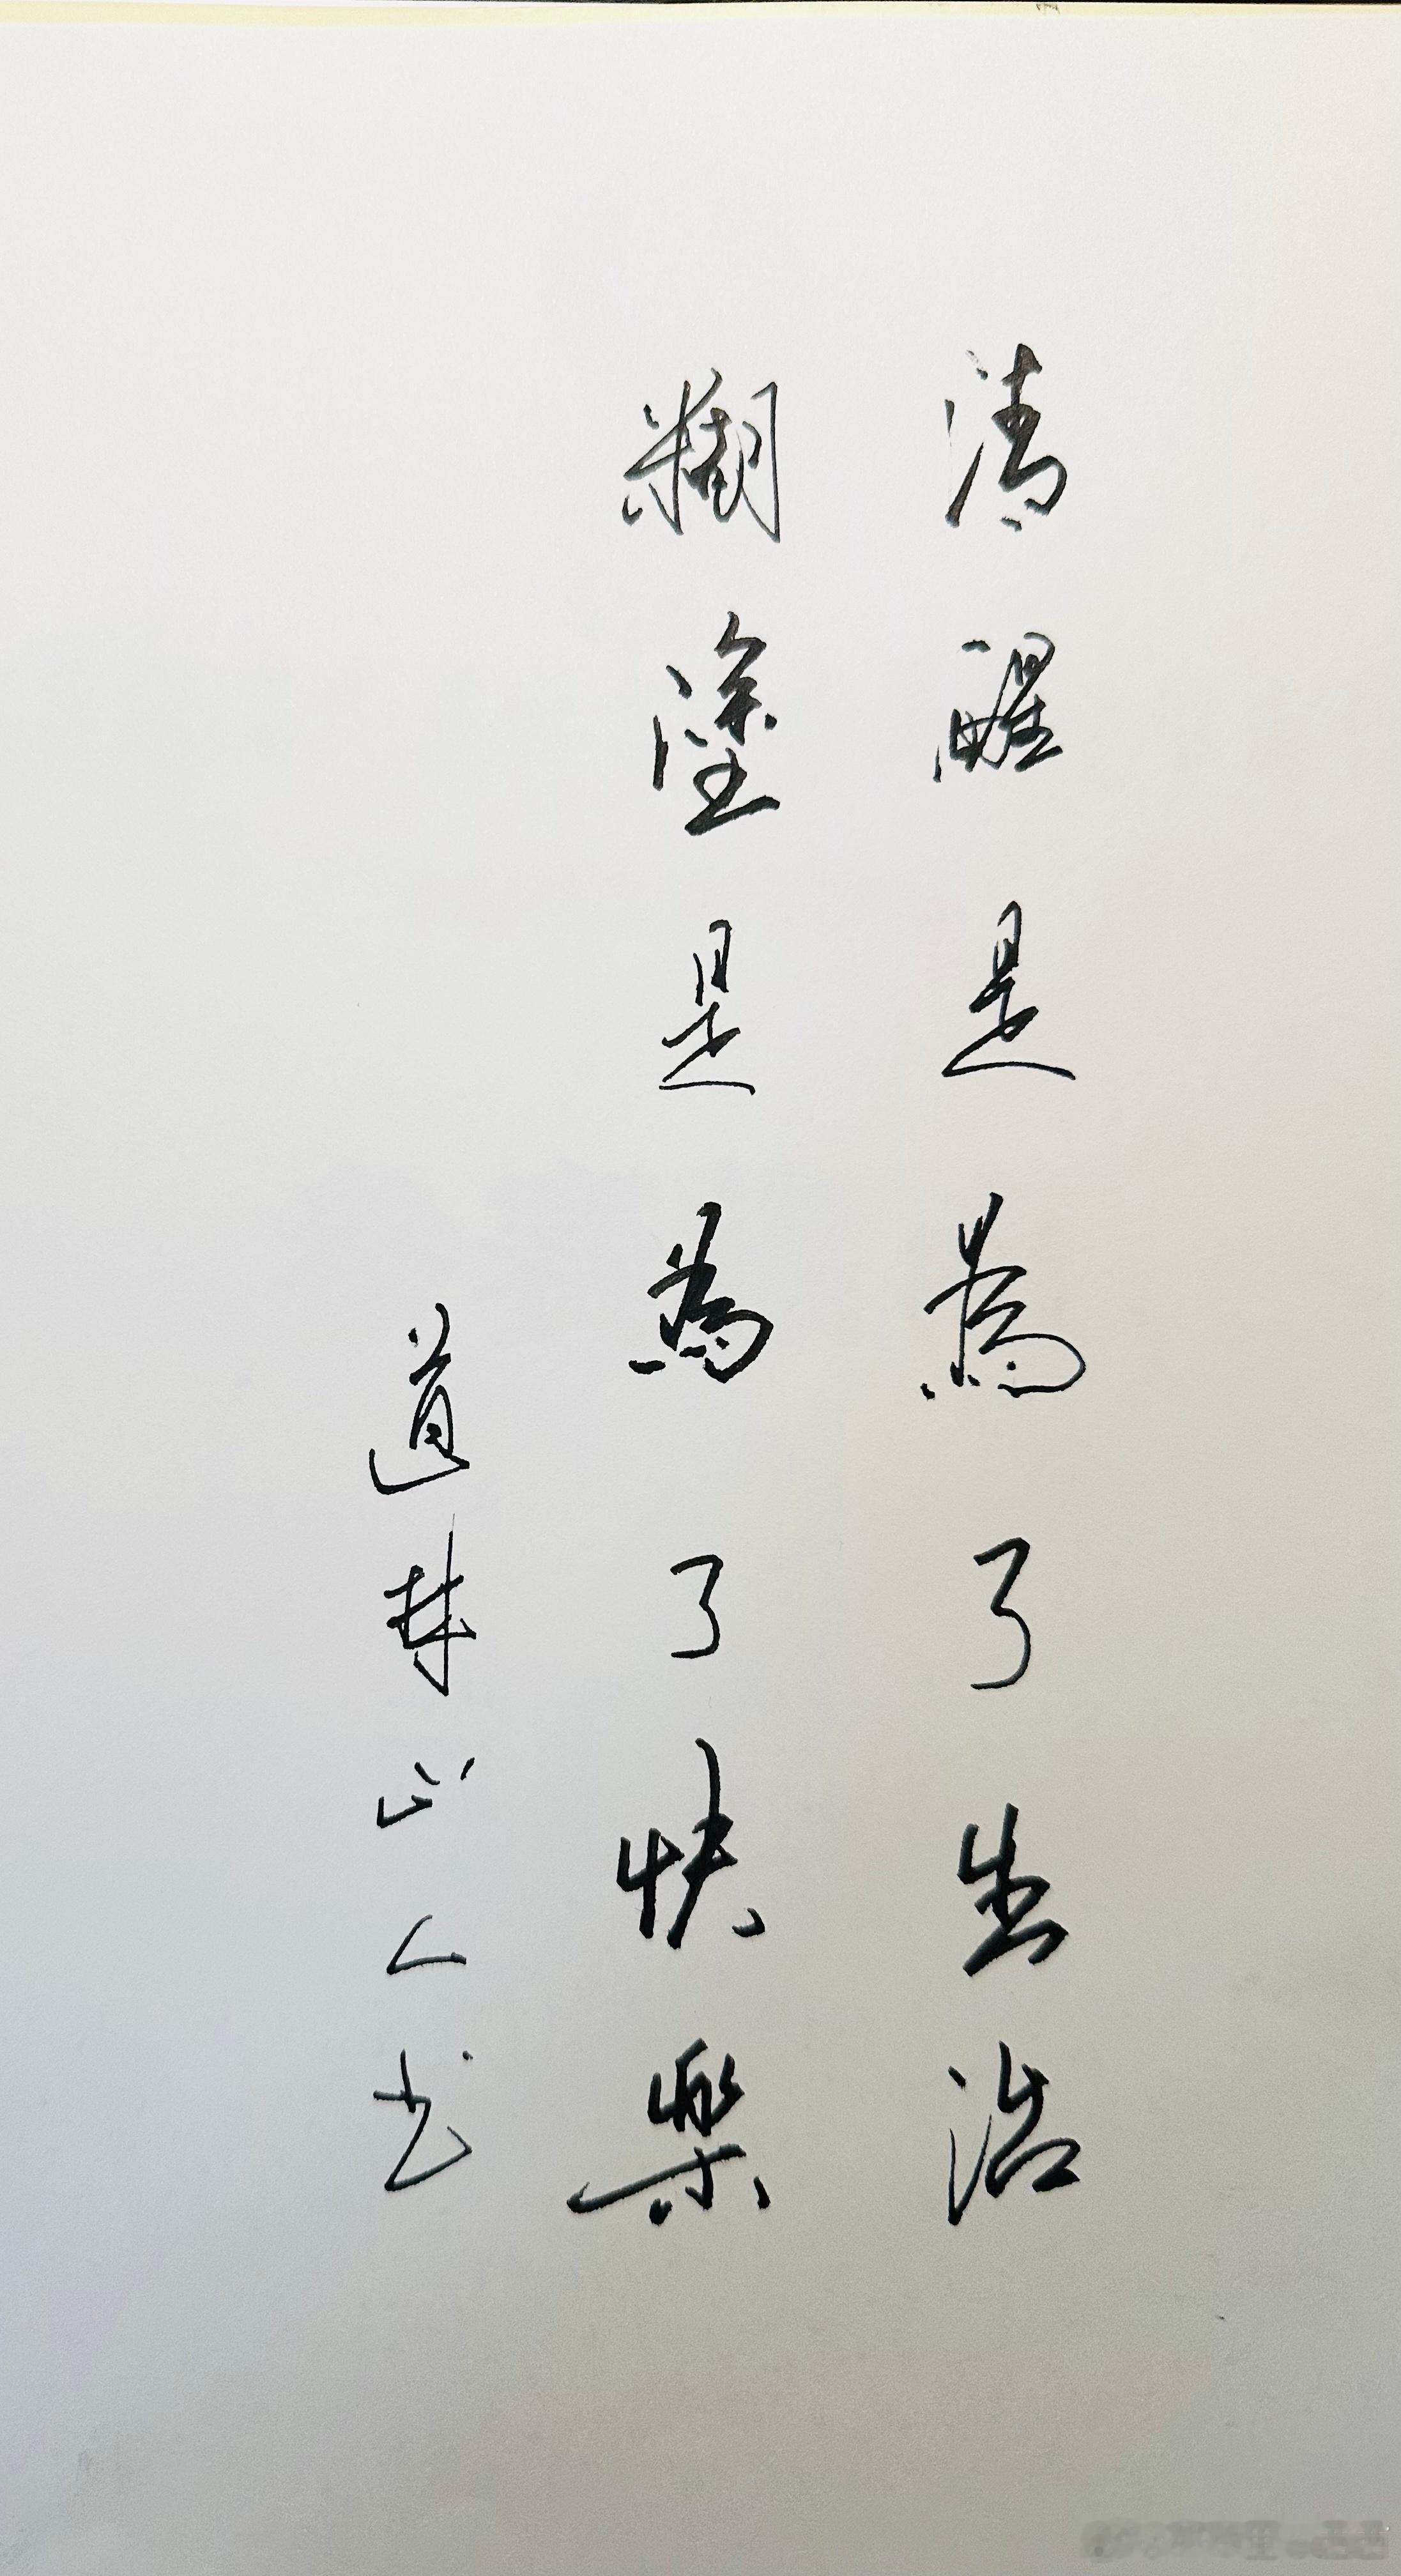 清醒是為了生活
糊塗是為了快樂
道林山人书